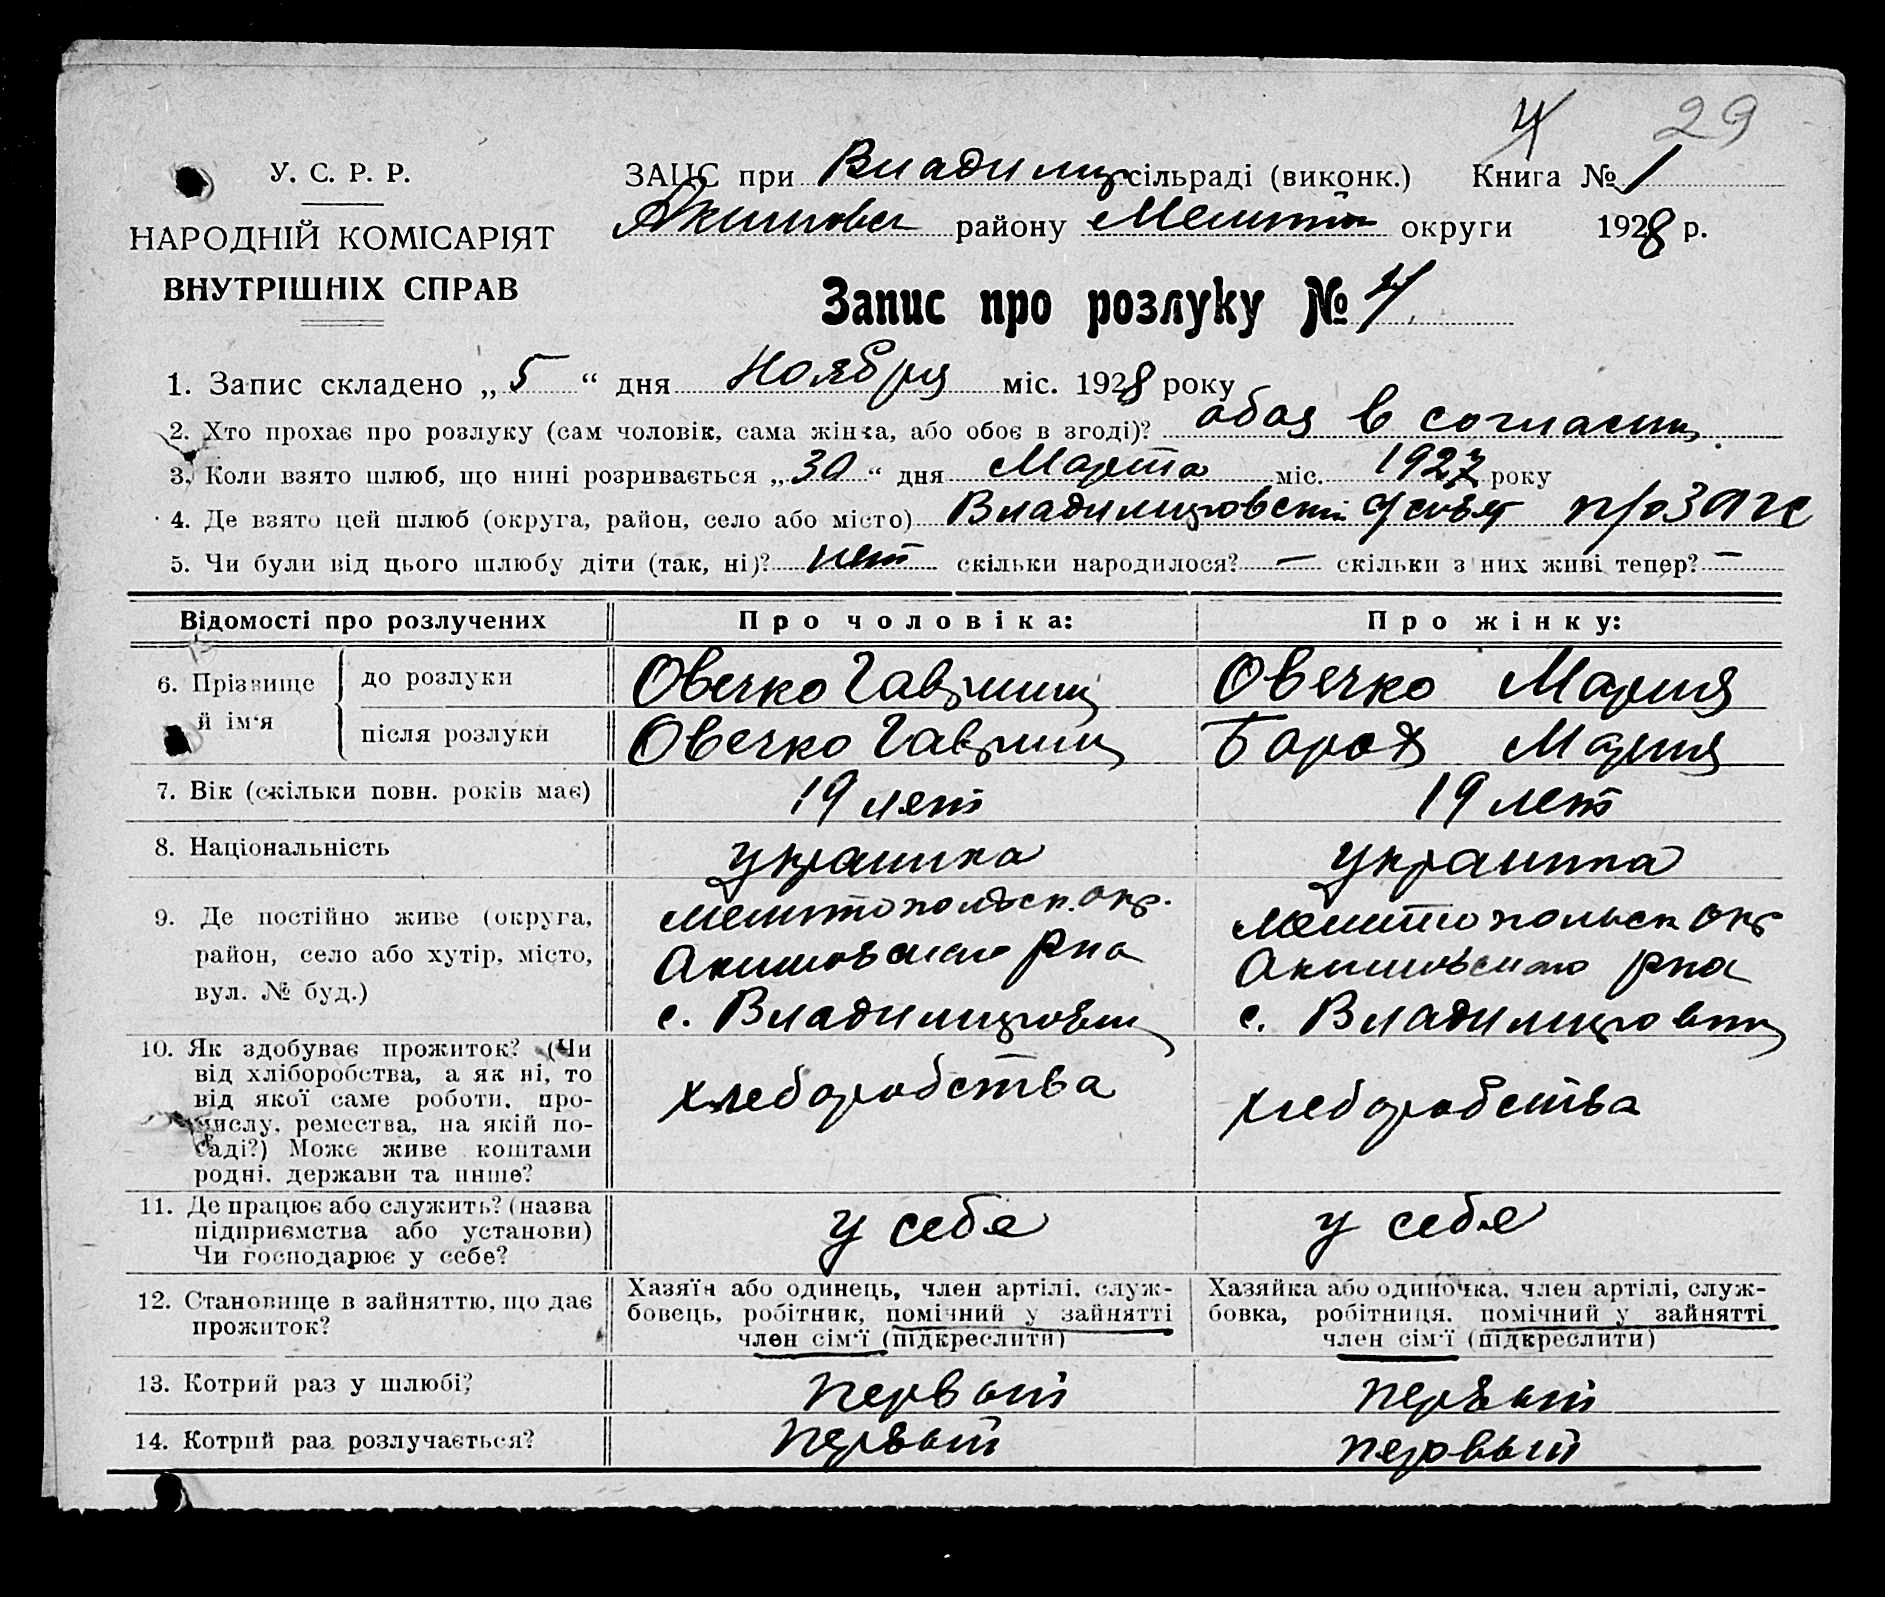 4 29
У. С. Р. Р.
НАРОДНІЙ КОМІСАРІЯТ
ВНУТРІШНІХ СПРАВ
ЗАЦС при Владимир сільраді (виконк.) Книга № 1
Акимовск району Мелитоп округи 1928 р.
Запис про розлуку № 4
1. Запис складено „ 5 “ дня Ноября міс. 1928 року
2. Хто прохає про розлуку (сам чоловік, сама жінка, або обоє в згоді)? обоя в согласии
3. Коли взято шлюб, що нині розривається „ 30 “ дня Марта міс. 1927 року
4. Де взято цей шлюб (округа, район, село або місто) Владимировский
5. Чи були від цього шлюбу діти (так, ні)? нет скільки народилося? — скільки з них живі тепер? —
Відомості про розлучених Про чоловіка: Про жінку:
6. Прізвище й ім'я до розлуки Овечко Гавриил Овечко Мария
після розлуки Овечко Гавриил Мария
7. Вік (скільки повн. років має) 19 лет 19 лет
8. Національність украинка украинка
9. Де постійно живе (округа, район, село або хутір, місто, вул. № буд.)
Мелитопольск. окр. Мелитопольск окр
Акимовского рна Акимовского рна
с. Владимировки с. Владимировки
10. Як здобуває прожиток? (Чи
від хліборобства, а як ні, то
від якої саме роботи, про-
мислу, ремества, на якій по-
саді?) Може живе коштами
родні, держави та инше?
хлеборобства хлеборобства
11. Де працює або служить? (назва
підприємства або установи)
Чи господарює у себе?
у себя у себя
12. Становище в зайняттю, що дає
прожиток?
Хазяїн або одинець, член артілі, служ-
бовець, робітник, помічний у зайнятті
член сім'ї (підкреслити)
Хазяйка або одиночка, член артілі, служ-
бовка, робітниця, помічний у зайнятті
член сім'ї (підкреслити)
13. Котрий раз у шлюбі? первый первый
14. Котрий раз розлучається? первый первый